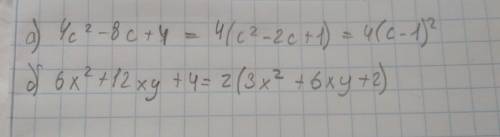 а) 4c² - 8c + 4 = 4(c² - 2c + 1) = 4(c - 1)²
б) 6x² + 12xy + 4 = 2(3x² + 6xy + 2)